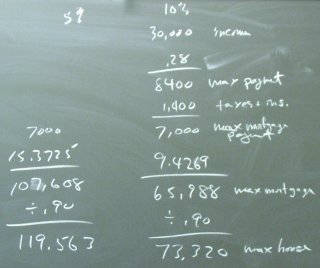 5% 10%
30,000 income
.28
8400 max paymt
1,400 taxes + ins.
7000 7,000 max mortgage paymt
15.3725 9.4269
107,608 65,988 max mortgage
÷ .90 ÷ .90
119.563 73,320 max house